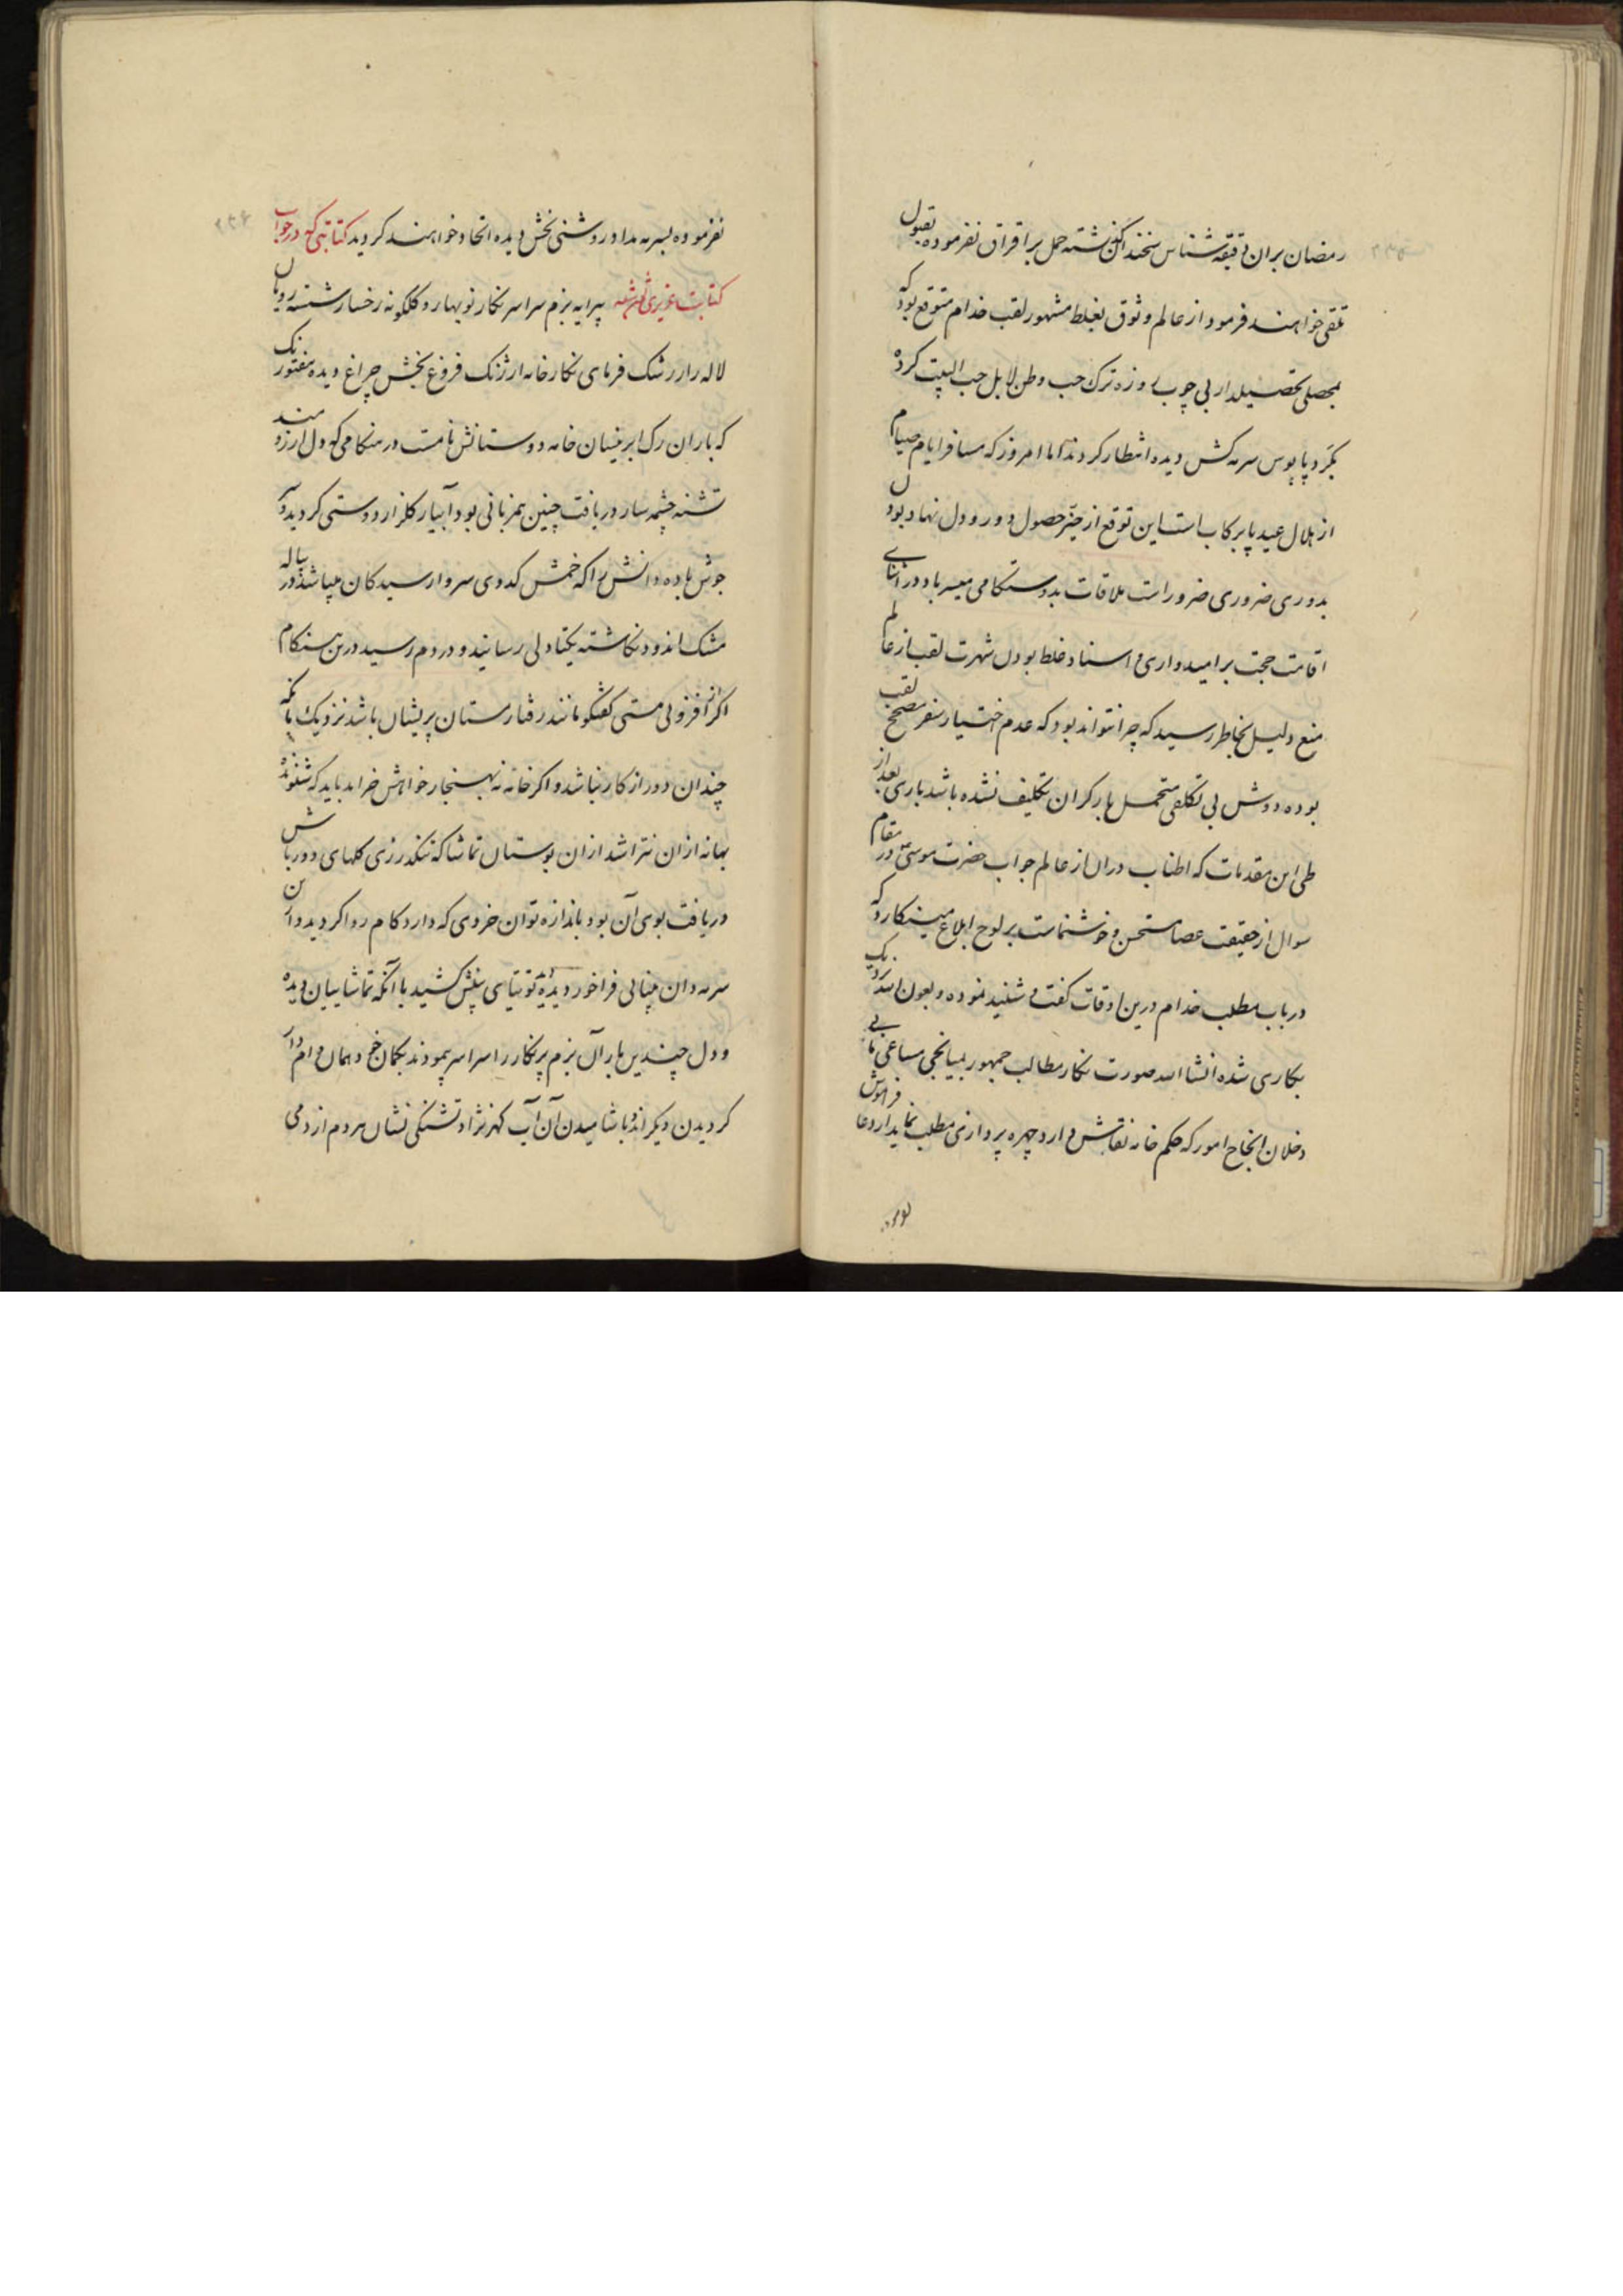 رمضان بران دقیقه شناس سخندان گذشته حمل بر اقران نفرموده بقبول
تلقی خواهند فرمود از عالم وثوق بغلط مشهور لقب خدام متوقع بود که
بمحصلی تحصیلدار بی چوب روزه ترک حب وطن لا بل حب البیت کرده
بگرد پاپوس سرمه کش دیده انتظار کردند اما امروز که مسافر ایام صیام
از هلال عید پا برکاب است این توقع از حیز حصول دور و دل نهاد بودن
بدوری ضروری ضرور است ملاقات بدوستکامی میسر باد در اثنای
اقامت حجت بر امیدواری و اسناد غلط بودن شهرت لقب از عالم
منع دلیل بخاطر رسید که چرا نتواند بود که عدم اختیار سفر مصحح لقب
بوده دوش بی تکلفی متحمل بار گران تکلیف نشده باشد باری بعد از
طی این مقدمات که اطناب دران از عالم جواب حضرت موسی در مقام
سوال از حقیقت عصا مستحسن و خوشنماست بر لوح ابلاغ مینگارد که
درباب مطلب خدام درین اوقات گفت و شنید نموده و بعون الله
بکاری شده انشا الله صورت نگار مطالب جمهور بمیانجی مساعی
و خلان انجاح امور که حکم خانه نقاش دارد چهره پردازی مطلب نماید از دعا فراموش
نفرموده بسرمه مداد روشنی بخش دیده اتحاد خواهند گردید کتابتی که در جواب
کتابت عزیزی نوشته پیرایه بزم سراسر نگار نوبهار و گلگونه رخسار شسته رویان
لاله زار رشک فرمای نگارخانه ارژنک فروغ بخش چراغ دیده
که باران رک ابر نیسان خامه دوستانش نامست در هنکامی که دل ارزومند
تشنه چشمه سار دریافت چنین همزبانی بود آبیار گلزار دوستی گردید
جوش باده دانش را که خمش کدوی سر وارسیدکان میباشد در پیاله
مشک اندود نگاشته یکتا دلی رسانید و دردم رسید درین هنگام
اگر از فزونی مستی گفتگو مانند رفتار مستان پریشان باشد نزدیک بانکه
چندان دور از کار نباشد و اگر خامه نه بهنجار خواهش خراید باید که شنونده
بهانه ازان نتراشد ازان بوستان تماشا که نگذرزی گلهای دورباش
دریافت بوی آن بود باندازه توان خردی که دارد کام روا گردید و ازان
سرمه دان بینائی فراخور دیده توتیای بینش کشید با آنکه تماشاییان دیده
و دل چندین بار آن بزم پرنگار را سراسر پیمودند
گردیدن دیگر اند و باشامیدن آن آب گهرنژاد تشنگی نشان مردم از دمی